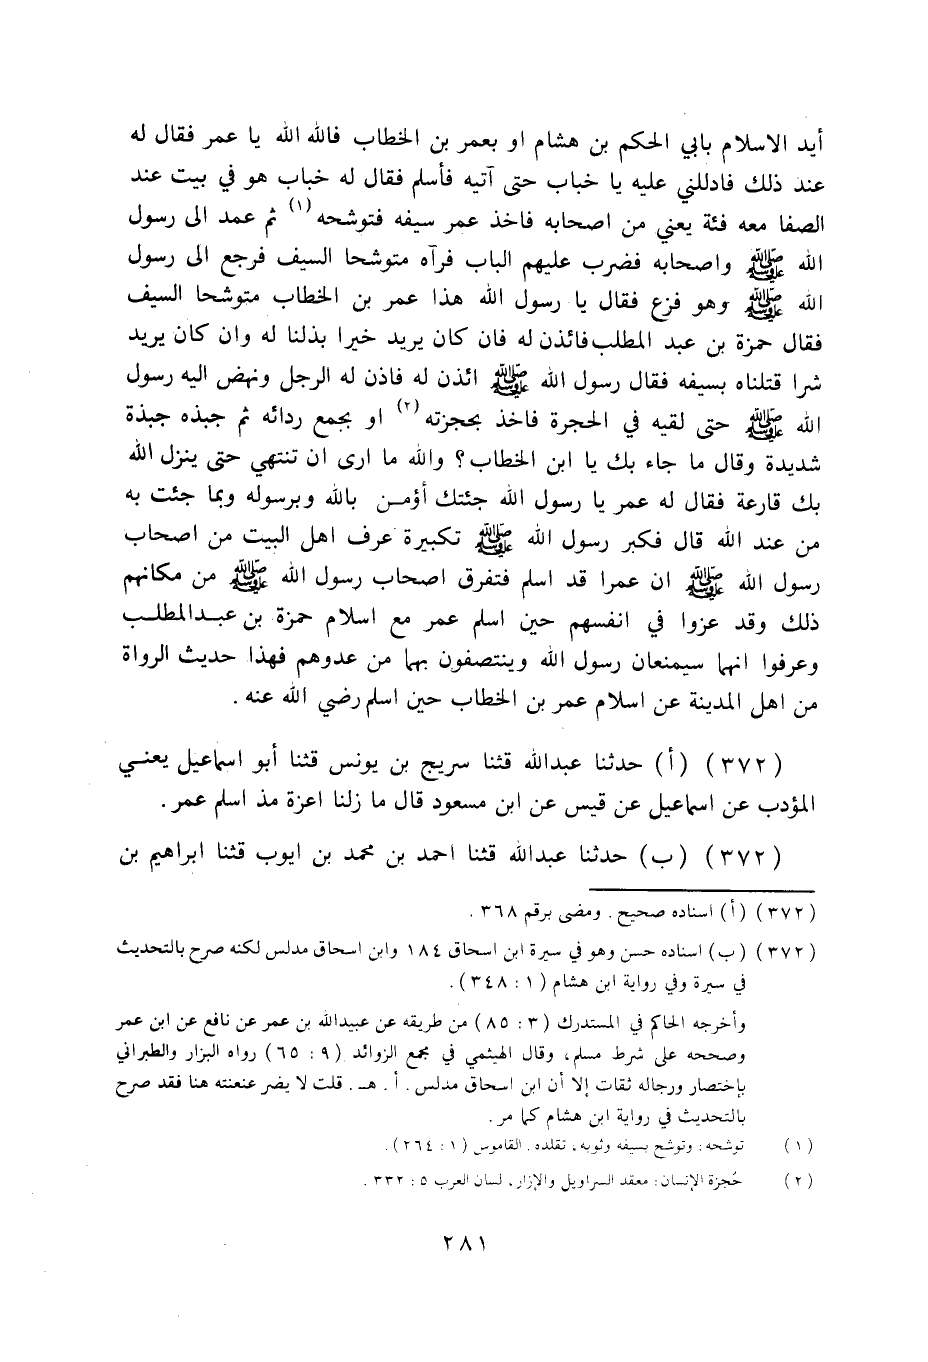 أيد الاسلام بابي الحكم بن هشام او بعمر بن الخطاب فالله الله يا عمر فقال له
عند ذلك فادللني عليه يا خباب حتى آتيه فأسلم فقال له خباب هو في بيت عند
الصفا معه فئة يعني من اصحابه فاخذ عمر سيفه فتوشحه (١) ثم عمد الى رسول
الله ﷺ واصحابه فضرب عليهم الباب فرآه متوشحا السيف فرجع الى رسول
الله ﷺ وهو فزع فقال يا رسول الله هذا عمر بن الخطاب متوشحا السيف
فقال حمزة بن عبد المطلب فائذن له فان كان يريد خيرا بذلنا له وان كان يريد
شرا قتلناه بسيفه فقال رسول الله ﷺ ائذن له فاذن له الرجل ونهض اليه رسول
الله ﷺ حتى لقيه في الحجرة فاخذ بحجزته (٢) او بجمع ردائه ثم جبذه جبذة
شديدة وقال ما جاء بك يا ابن الخطاب؟ والله ما ارى ان تنتهي حتى ينزل الله
بك قارعة فقال له عمر يا رسول الله جئتك أؤمن بالله وبرسوله وبما جئت به
من عند الله قال فكبر رسول الله ﷺ تكبيرة عرف اهل البيت من اصحاب
رسول الله ﷺ ان عمرا قد اسلم فتفرق اصحاب رسول الله ﷺ من مكانهم
ذلك وقد عزوا في انفسهم حين اسلم عمر مع اسلام حمزة بن عبدالمطلب
وعرفوا انهما سيمنعان رسول الله وينتصفون بهما من عدوهم فهذا حديث الرواة
من اهل المدينة عن اسلام عمر بن الخطاب حين اسلم رضي الله عنه .
(٣٧٢) (أ) حدثنا عبدالله قثنا سريج بن يونس قثنا أبو اسماعيل يعني
المؤدب عن اسماعيل عن قيس عن ابن مسعود قال ما زلنا اعزة مذ اسلم عمر .
(٣٧٢) (ب) حدثنا عبدالله قثنا احمد بن محمد بن ايوب قثنا ابراهيم بن
(٣٧٢) (أ) اسناده صحيح . ومضى برقم ٣٦٨ .
(٣٧٢) (ب) اسناده حسن وهو في سيرة ابن اسحاق ١٨٤ وابن اسحاق مدلس لكنه صرح بالتحديث
في سيرة وفي رواية ابن هشام (١ : ٣٤٨) .
وأخرجه الحاكم في المستدرك (٣ : ٨٥) من طريقه عن عبيدالله بن عمر عن نافع عن ابن عمر
وصححه على شرط مسلم، وقال الهيثمي في مجمع الزوائد (٩ : ٦٥) رواه البزار والطبراني
بإختصار ورجاله ثقات إلا أن ابن اسحاق مدلس . أ . هـ . قلت لا يضر عنعنته هنا فقد صرح
بالتحديث في رواية ابن هشام كما مر .
(١) توشحه : وتوشح بسيفه وثوبه، تقلده . القاموس (١ : ٢٦٤) .
(٢) حُجزة الإنسان : معقد السراويل والإزار، لسان العرب ٥ : ٣٣٢ .
٢٨١